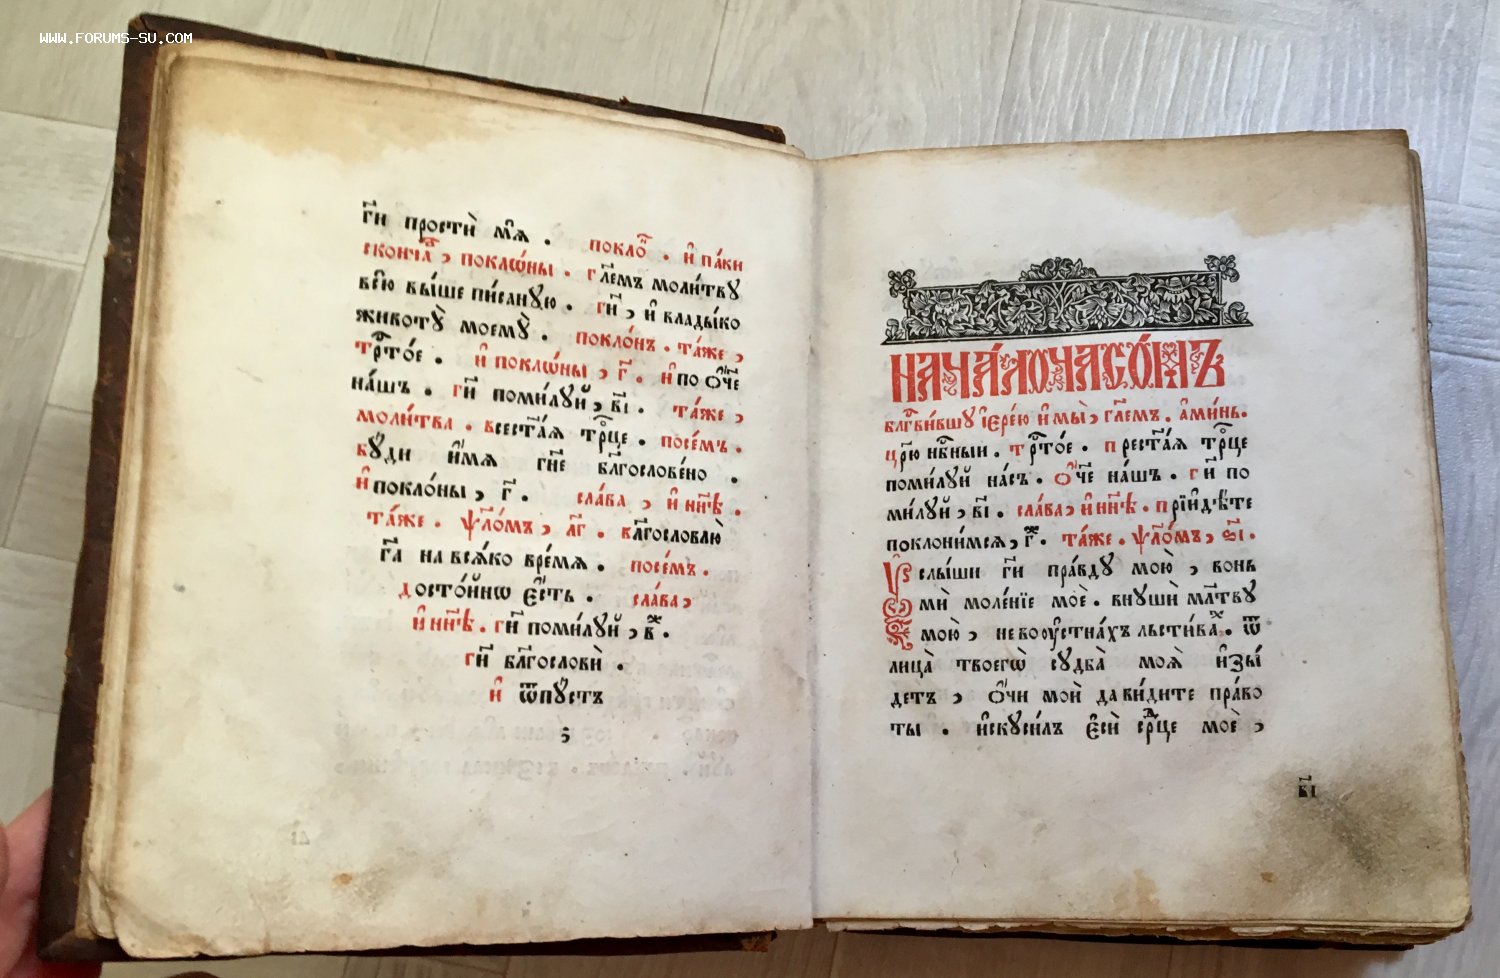 WWW.FORUMS-SU.COM
гдⷭ҇и простѝ мѧ̀ . покло́ⷩ . и҆ па́ки
сконча́ѧ , поклѡ́ны . гл҃емъ моли́тву
всю̀ вы́ше пи́санꙋю . гд҇и , и҆ влады́ко
животꙋ̀ моемꙋ̀ . покло́нъ . та́же ,
трⷭ҇то́е . и҆ поклѡ́ны , г҃ . и҆ по ѻ҆́ч҃е
на́шъ . гд҇и поми́лꙋй , в҃і . та́же ,
моли́тва . всест҃а́ѧ трⷪ҇це . посе́мъ .
бꙋ́ди и҆́мѧ гн҇е блгⷭ҇ослове́но .
и҆ покло́ны , г҃ . сла́ва , и҆ нн҃ѣ .
та́же . ѱало́мъ , лг҃ . блгⷭ҇ословлю̀
гд҇а на всѧ́ко вре́мѧ . посе́мъ .
досто́йнѡ є҆́сть . сла́ва ,
и҆ нн҃ѣ . гд҇и поми́лꙋй , в҃ж .
гд҇и блгⷭ҇ословѝ .
и҆ ѿпꙋ́стъ
;
НАЧА́ЛО ЧАСО́МЪ
блгⷭ҇ви́вшꙋ і҆ере́ю и҆ мы̀ , гл҃емъ . а҆ми́нь .
цр҃ю нбⷭ҇ныи . трⷭ҇то́е . прест҃а́ѧ трⷪ҇це
поми́лꙋй на́съ . ѻ҆́ч҃е на́шъ . гд҇и по
ми́лꙋй , в҃і . сла́ва , и҆ нн҃ѣ . прїиди́те
поклони́мсѧ , гⷤ . та́же . ѱало́мъ , ѕ҃і .
Оу҆слы́ши гд҇и пра́вдꙋ мою̀ , вонь
мѝ моле́нїе моѐ . внꙋшѝ мл҃твꙋ
мою̀ , не во оу҆стна́хъ льсти́ваⷯ . ѿ
лица̀ твоегѡ̀ сꙋдба̀ моѧ̀ и҆зы́
детъ , ѻ҆́чи моѝ да ви́дите пра́во
ты . и҆скꙋси́лъ є҆сѝ срⷣце моѐ ,
в҃і